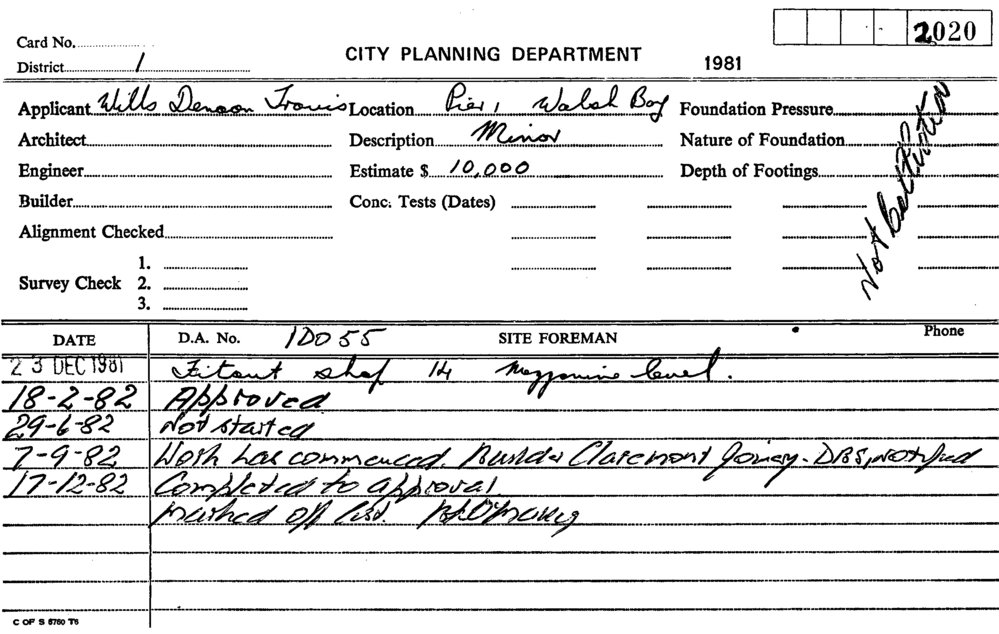 2020
Card No.
CITY PLANNING DEPARTMENT
1981
District 1
Applicant Wills Denoon Travis Location Pier 1 Walsh Bay Foundation Pressure
Architect Description Minor Nature of Foundation
Engineer Estimate $ 10,000 Depth of Footings
Builder Conc. Tests (Dates)
Alignment Checked
Not
1.
Survey Check 2.
3.
DATE D.A. No. 1D055 SITE FOREMAN Phone
23 DEC 1981 Fitout shop 14 Mezzanine level.
18-2-82 Approved
29-6-82 Not started
7-9-82 Work has commenced. Builder Claremont Joinery - DBS, notified
17-12-82 Completed to approval
marked off list.
C OF S 5760 T6